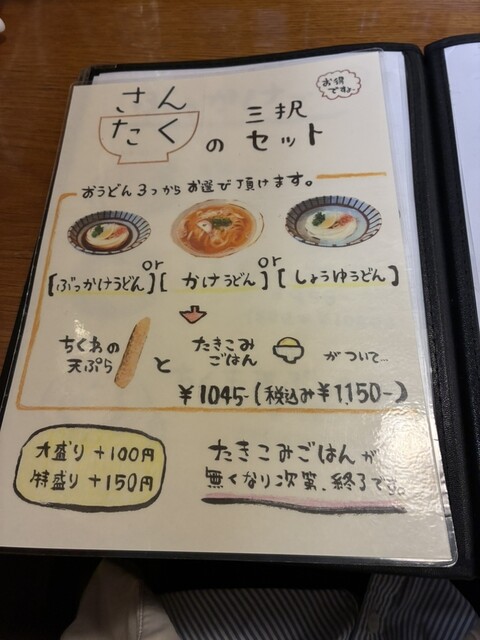 お得
ですよ
さん
たく の 三択
セット
おうどん3つから お選び頂けます。
or
or
【ぶっかけうどん】【かけうどん】【しょうゆうどん】
ちくわの
天ぷら と たきこみ
ごはん がついて…
¥1045-(税込み¥1,150-)
大盛り +100円
特盛り +150円
たきこみごはんが
無くなり次第、終了です。